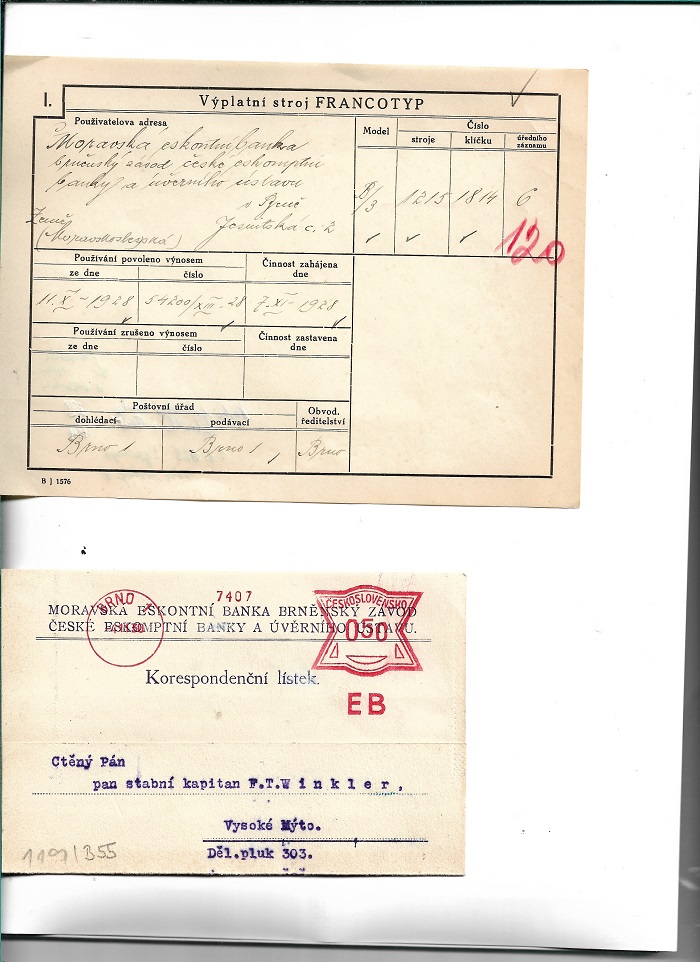 I.
Výplatní stroj FRANCOTYP
Používatelova adresa
Moravská eskontní banka
brněnský závod české eskomptní
banky a úvěrního ústavu
v Brně
Země Jesuitská č. 2
(Moravskoslezská)
Model
Číslo
stroje klíčku úředního záznamu
B/3 1215 1814 6
120
Používání povoleno výnosem
ze dne číslo
Činnost zahájena dne
11.X.-1928 54200/XIII-28 7.XI-1928
Používání zrušeno výnosem
ze dne číslo
Činnost zastavena dne
Poštovní úřad
dohlédací podávací
Obvod. ředitelství
Brno 1 Brno 1 Brno
B J 1576
7407
BRNO 1
ČESKOSLOVENSKO
050
MORAVSKÁ ESKONTNÍ BANKA BRNĚNSKÝ ZÁVOD
ČESKÉ ESKOMPTNÍ BANKY A ÚVĚRNÍHO ÚSTAVU.
Korespondenční lístek.
EB
Ctěný Pán
pan stabní kapitan F.T.Winkler,
Vysoké Mýto.
Děl.pluk 303.
1191/B55